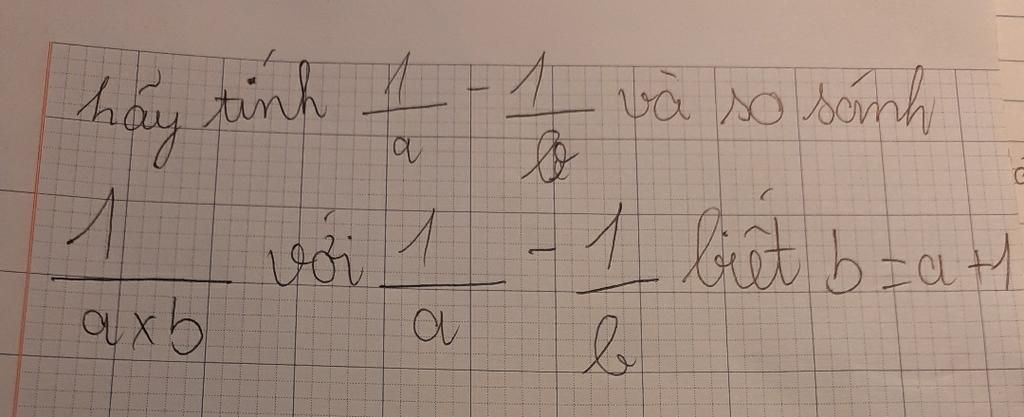 hãy tính 1/a - 1/b và so sánh
1/a×b với 1/a - 1/b biết b = a + 1